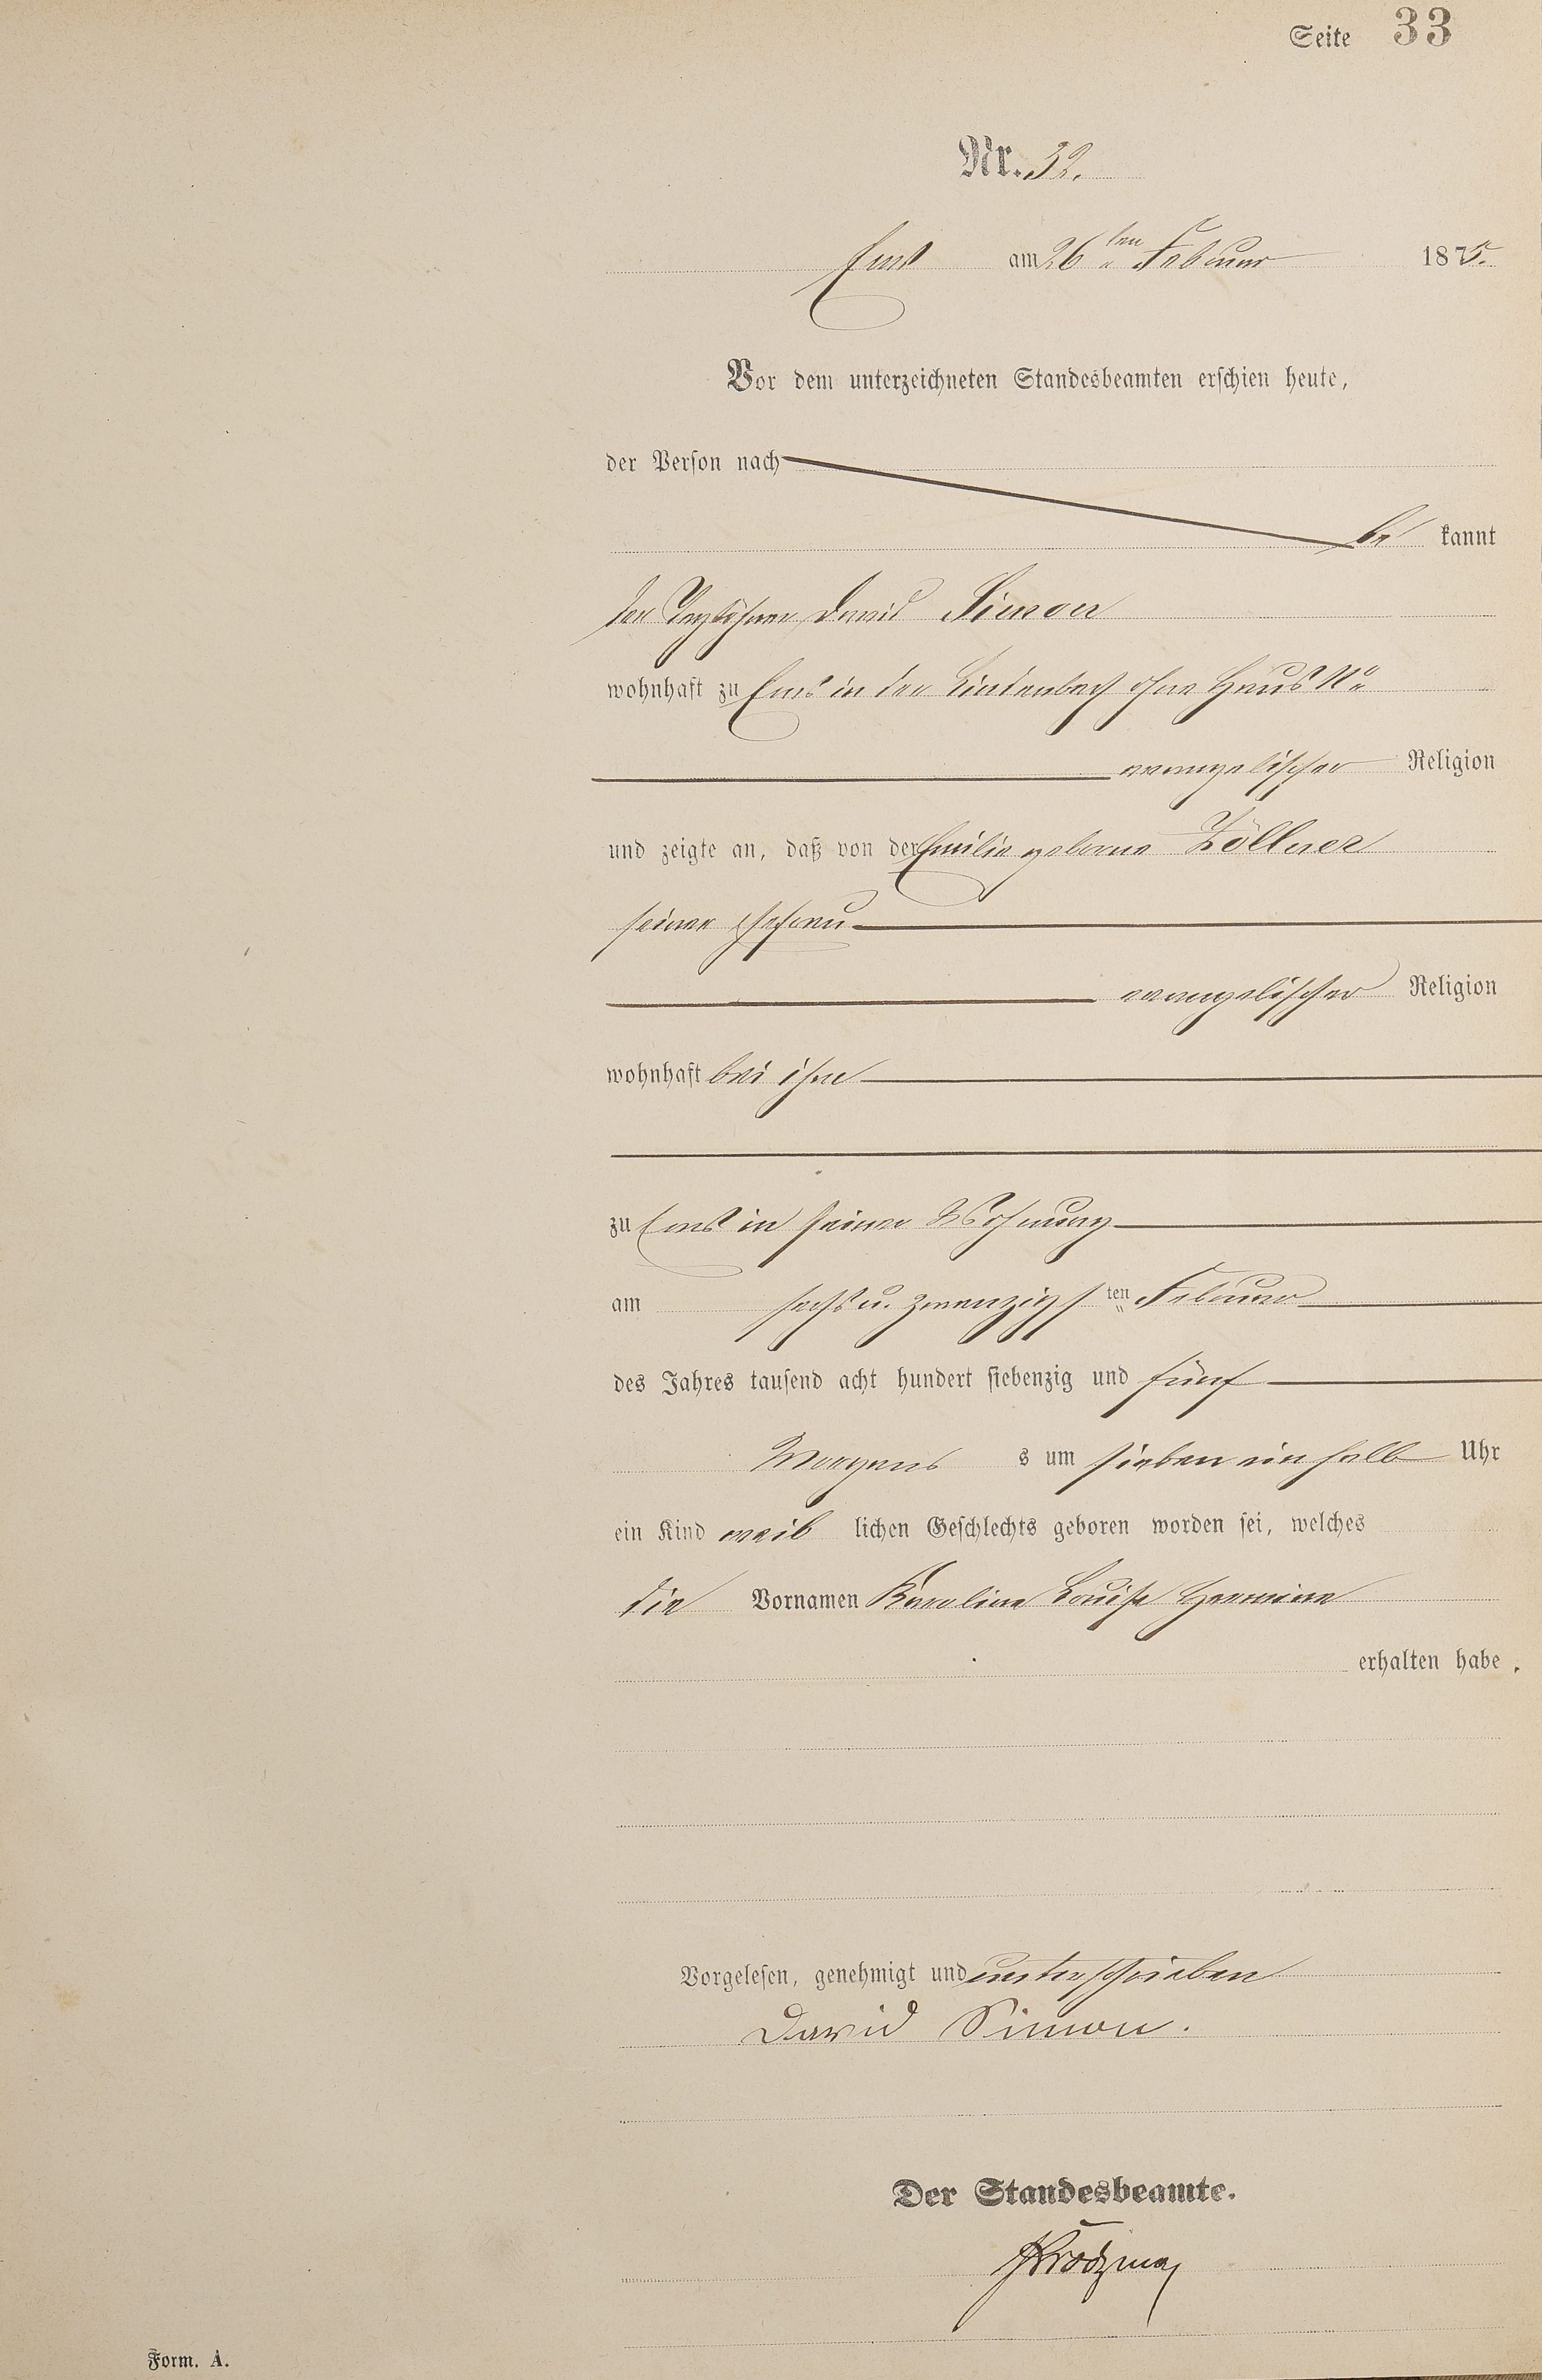 Seite 33
Nr. 32.
Ems am 26ten Februar 1875.
Vor dem unterzeichneten Standesbeamten erschien heute,
der Person nach
be kannt
der Taglöhner David Simon
wohnhaft zu Ems in der Lindenbach ohne Haus No
evangelischer Religion
und zeigte an, daß von der Emilie geborne Zöllner
seiner Ehefrau
evangelischer Religion
wohnhaft bei ihm
zu Ems in seiner Wohnung
am sechs u. zwanzigsten Februar
des Jahres tausend acht hundert siebenzig und fünf
Morgens s um sieben ein halb Uhr
ein Kind weib lichen Geschlechts geboren worden sei, welches
die Vornamen Karoline Louise Hermine
erhalten habe.
Vorgelesen, genehmigt und unterschrieben
David Simon.
Der Standesbeamte.
Form. A.